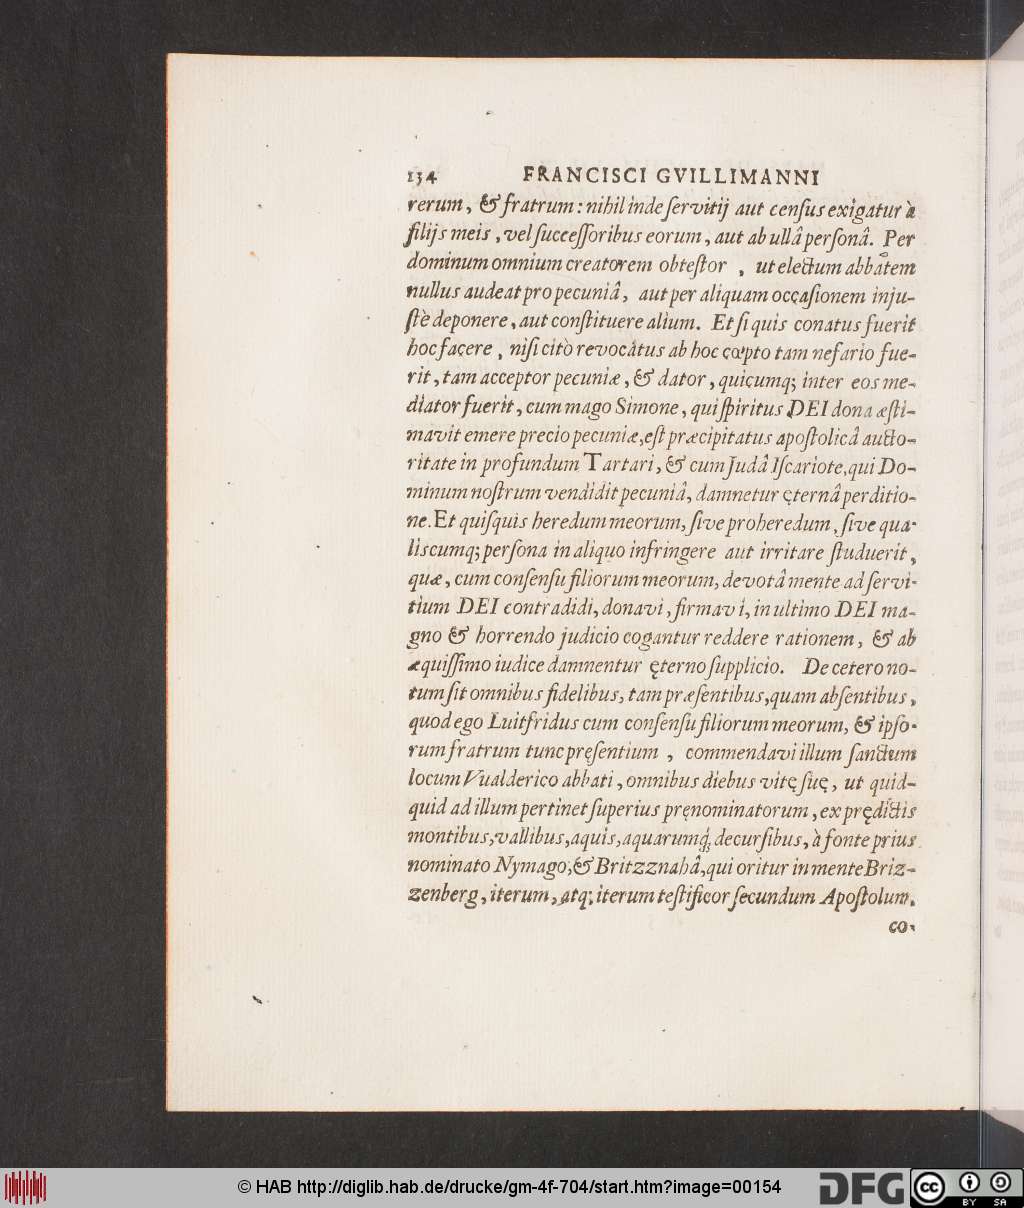 134 FRANCISCI GVILLIMANNI
rerum, & fratrum: nihil inde ſervitij aut cenſus exigatur à
filijs meis, vel ſucceſſoribus eorum, aut ab ullâ perſonâ. Per
dominum omnium creatorem obteſtor, ut electum abbatem
nullus audeat pro pecuniâ, aut per aliquam occaſionem inju-
ſtè deponere, aut conſtituere alium. Et ſi quis conatus fuerit
hoc facere, niſi citò revocatus ab hoc cœpto tam nefario fue-
rit, tam acceptor pecuniæ, & dator, quicumq; inter eos me-
diator fuerit, cum mago Simone, qui ſpiritus DEI dona æſti-
mavit emere precio pecuniæ, eſt præcipitatus apoſtolicâ aucto-
ritate in profundum Tartari, & cum Judâ Iſcariote, qui Do-
minum noſtrum vendidit pecuniâ, damnetur ęternâ perditio-
ne. Et quiſquis heredum meorum, ſive proheredum, ſive qua-
liscumq; perſona in aliquo infringere aut irritare ſtuduerit,
quæ, cum conſenſu filiorum meorum, devotâ mente ad ſervi-
tium DEI contradidi, donavi, firmavi, in ultimo DEI ma-
gno & horrendo judicio cogantur reddere rationem, & ab
æquiſſimo iudice damnentur ęterno ſupplicio. De cetero no-
tum ſit omnibus fidelibus, tam præſentibus, quam abſentibus,
quod ego Luitfridus cum conſenſu filiorum meorum, & ipſo-
rum fratrum tunc pręſentium, commendavi illum ſanctum
locum Vualderico abbati, omnibus diebus vitę ſuę, ut quid-
quid ad illum pertinet ſuperius pręnominatorum, ex prędictis
montibus, vallibus, aquis, aquarumq́; decurſibus, à fonte prius
nominato Nymago, & Britzznahâ, qui oritur in mente Briz-
zenberg, iterum, atq; iterum teſtificor ſecundum Apoſtolum.
co-
© HAB http://diglib.hab.de/drucke/gm-4f-704/start.htm?image=00154
DFG
cc
BY SA